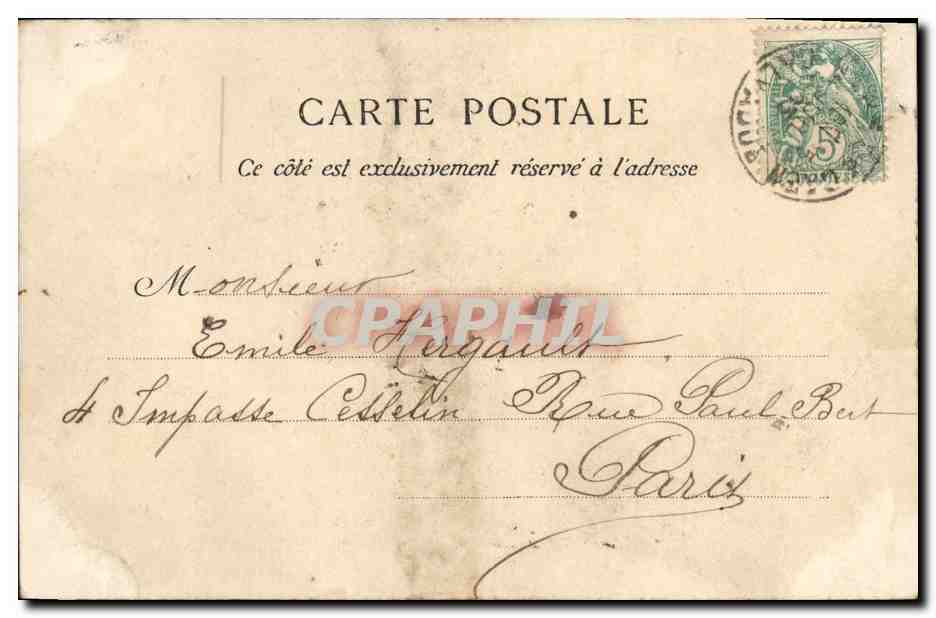 CARTE POSTALE
Ce côté est exclusivement réservé à l'adresse
Monsieur
CPAPHIL
Emile Hergault
4 Impasse Cesselin Rue Paul-Bert
Paris
5